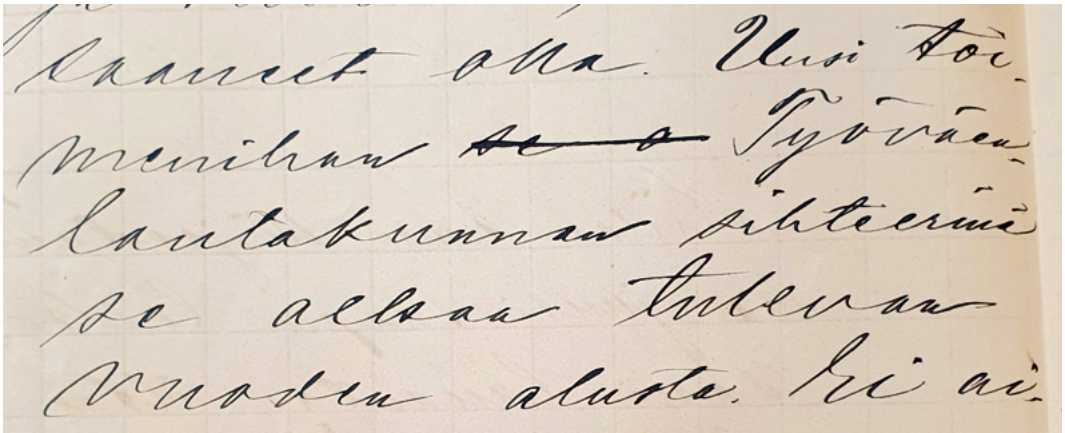 saaneet olla. Uusi toi-
menihan se o Työväen-
lautakunnan sihteerinä
se alkaa tulevan
vuoden alusta. Ei ai-